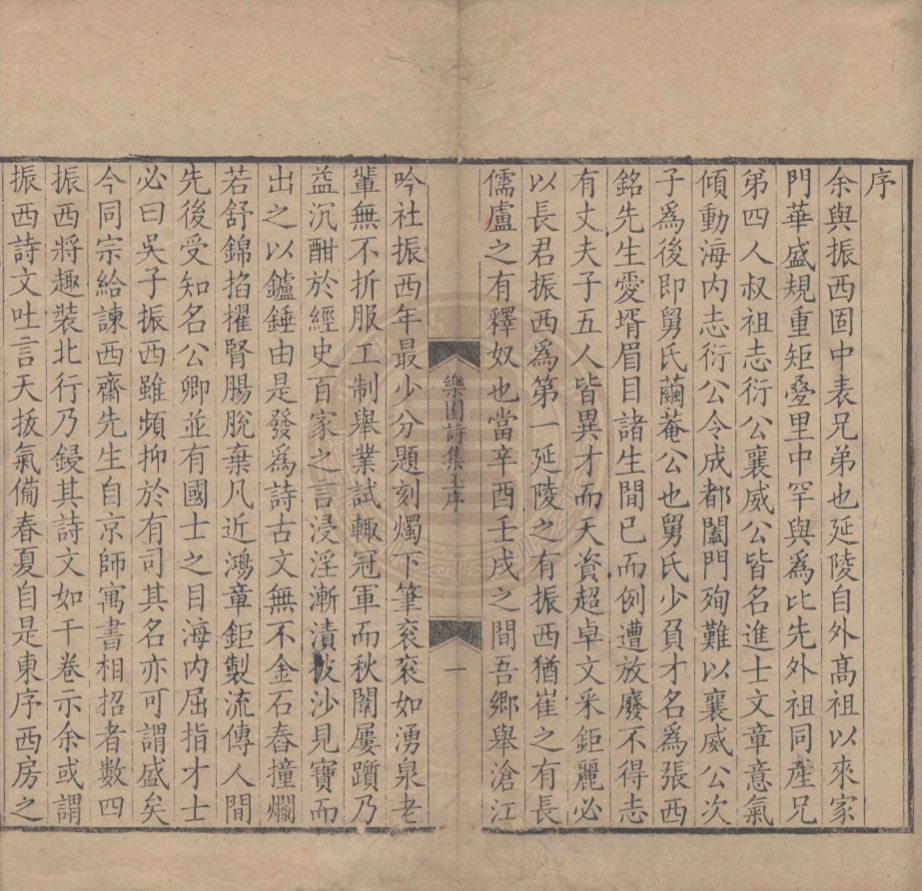 序
余與振西固中表兄弟也延陵自外高祖以來家
門華盛規重矩疊里中罕與為比先外祖同產兄
弟四人叔祖志衍公襄威公皆名進士文章意氣
傾動海内志衍公令成都闔門殉難以襄威公次
子為後即舅氏繭菴公也舅氏少負才名為張西
銘先生愛壻眉目諸生間已而例遭放廢不得志
有丈夫子五人皆異才而天資超卓文采鉅麗必
以長君振西為第一延陵之有振西猶崔之有長
儒盧之有釋奴也當辛酉壬戌之間吾鄉舉滄江
樂園詩集 序
一
吟社振西年最少分題刻燭下筆衮衮如湧泉老
輩無不折服工制舉業試輙冠軍而秋闈屢躓乃
益沉酣於經史百家之言浸淫漸漬披沙見寶而
出之以鑪錘由是發為詩古文無不金石舂撞爛
若舒錦掐擢腎腸脫棄凡近鴻章鉅製流傳人間
先後受知名公卿並有國士之目海内屈指才士
必曰吳子振西雖頻抑於有司其名亦可謂盛矣
今同宗給諫西齋先生自京師寓書相招者數四
振西將趣裝北行乃鋟其詩文如干卷示余或謂
振西詩文吐言天拔氣備春夏自是東序西房之